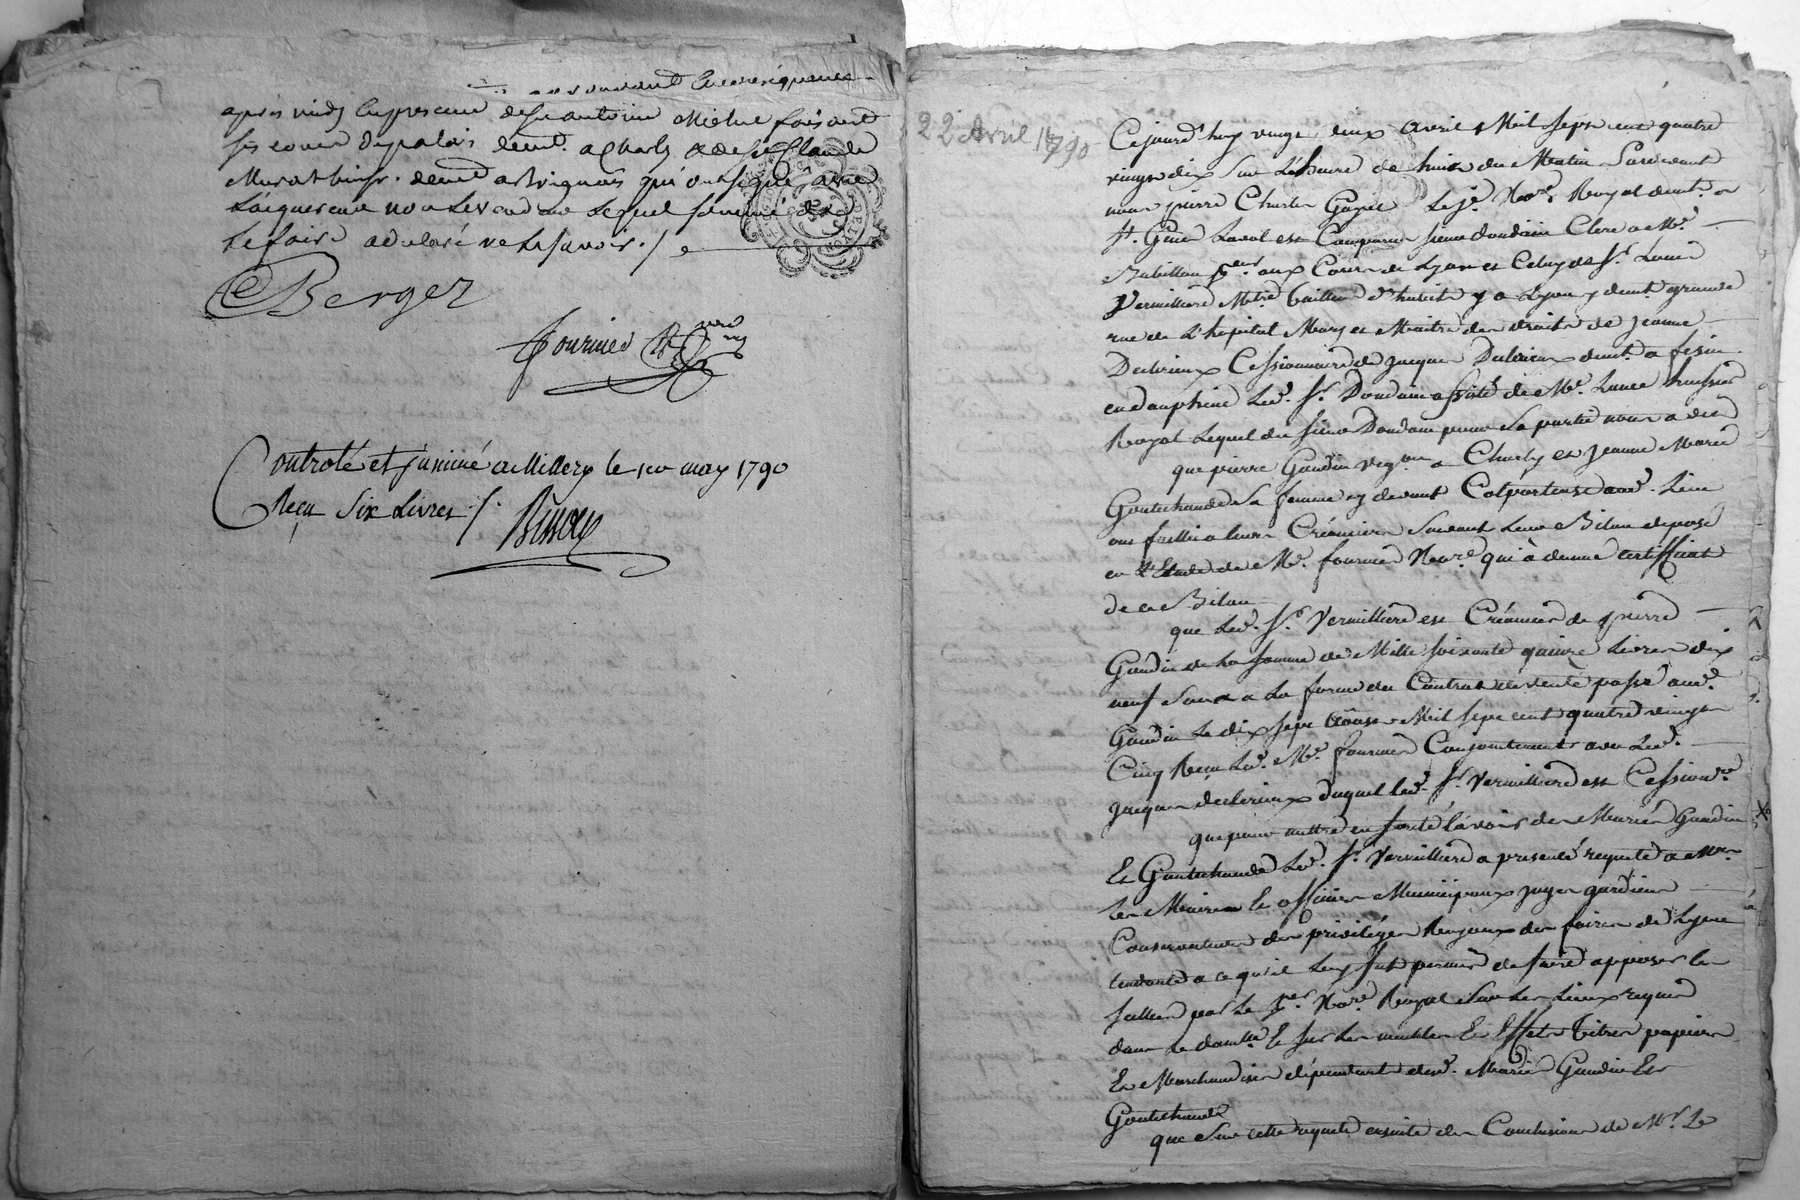 après midy en presence de sr antoine Michel faisant
ses cours de palais demt. a Charly & de sr Claude
Murat bourgs. demt. a Brignais qui ont signé avec
l'acquereur non le vendeur lequel sommé de
le faire a declaré ne le savoir ./.
Berger
fournier Nre
Controlé et insinué a Millery le 1er may 1790
Reçu Six Livres ./.
22 Avril 1790
Cejourd'huy vingt deux avril Mil Sept cent quatre
vingt dix Sur L'heure de huit du Matin Pardevant
nous pierre Charles Nore. Royal demt. a
St. Genis Laval est Comparu sieur Doudain Clerc de Me.
aux Cours de Lyon et Celuy de Sr. Louis
Vermilliere Mtre. tailleur d'habits a Lyon y demt. grande
rue de L'hopital Mary et Maitre des droits de jeanne
Declerieux Cessionnaire de jacques Declerieux demt. a
en dauphiné Led. Sr. Doudain assisté de Me. huissier
Royal Lequel dit sieur Doudain pour Sa partie nous a dit
que pierre Gaudin vigon. a Charly et jeanne Marie
Gontechande Sa femme cy devant Colporteurs aud. Lieu
ont failli a leurs Créanciers Suivant Leur Bilan deposé
en L'Etude de Me. fournier Nore. qui a donné certifficat
de ce Bilan
que Led. Sr. Vermilliere est Créancier de pierre
Gaudin de La Somme de Mille soixante quinze Livres dix
neuf Sous a La forme du Contrat de vente passé aud.
Gaudin Le dix sept Aoust Mil Sept cent quatre vingt
Cinq Reçu Led. Me. fournier Conjointement avec Led.
jacques declerieux duquel led. Sr. Vermilliere est Cessionre.
que pour mettre en sureté l'avoir des Mariés Gaudin
Et Gontechande Led. Sr. Vermilliere a presenté requete a Mrs.
les Maire et officiers Municipaux juges gardiens
Conservateurs des privilèges Royaux des foires de Lyon
tendante a ce qu'il luy fut permis de faire apposer les
scellés par Le 1er Nore Royal Sur Les Lieux requis
dans le domlle. Et sur Les meubles Et Effets titres papiers
Et Marchandises dépendants desd. Mariés Gaudin Et
Gontechande
que Sur cette requete ensuite des Conclusions de Mr. Le